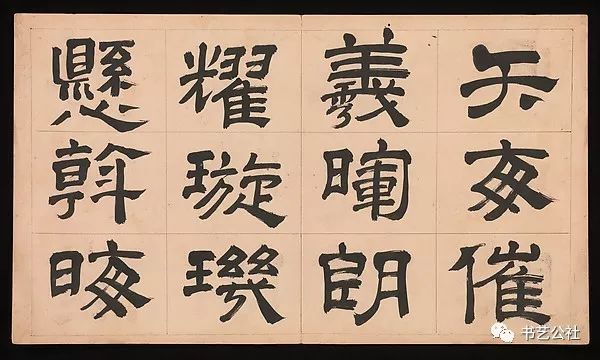 矢每催
羲暉朗
耀璇璣
懸斡晦
书艺公社